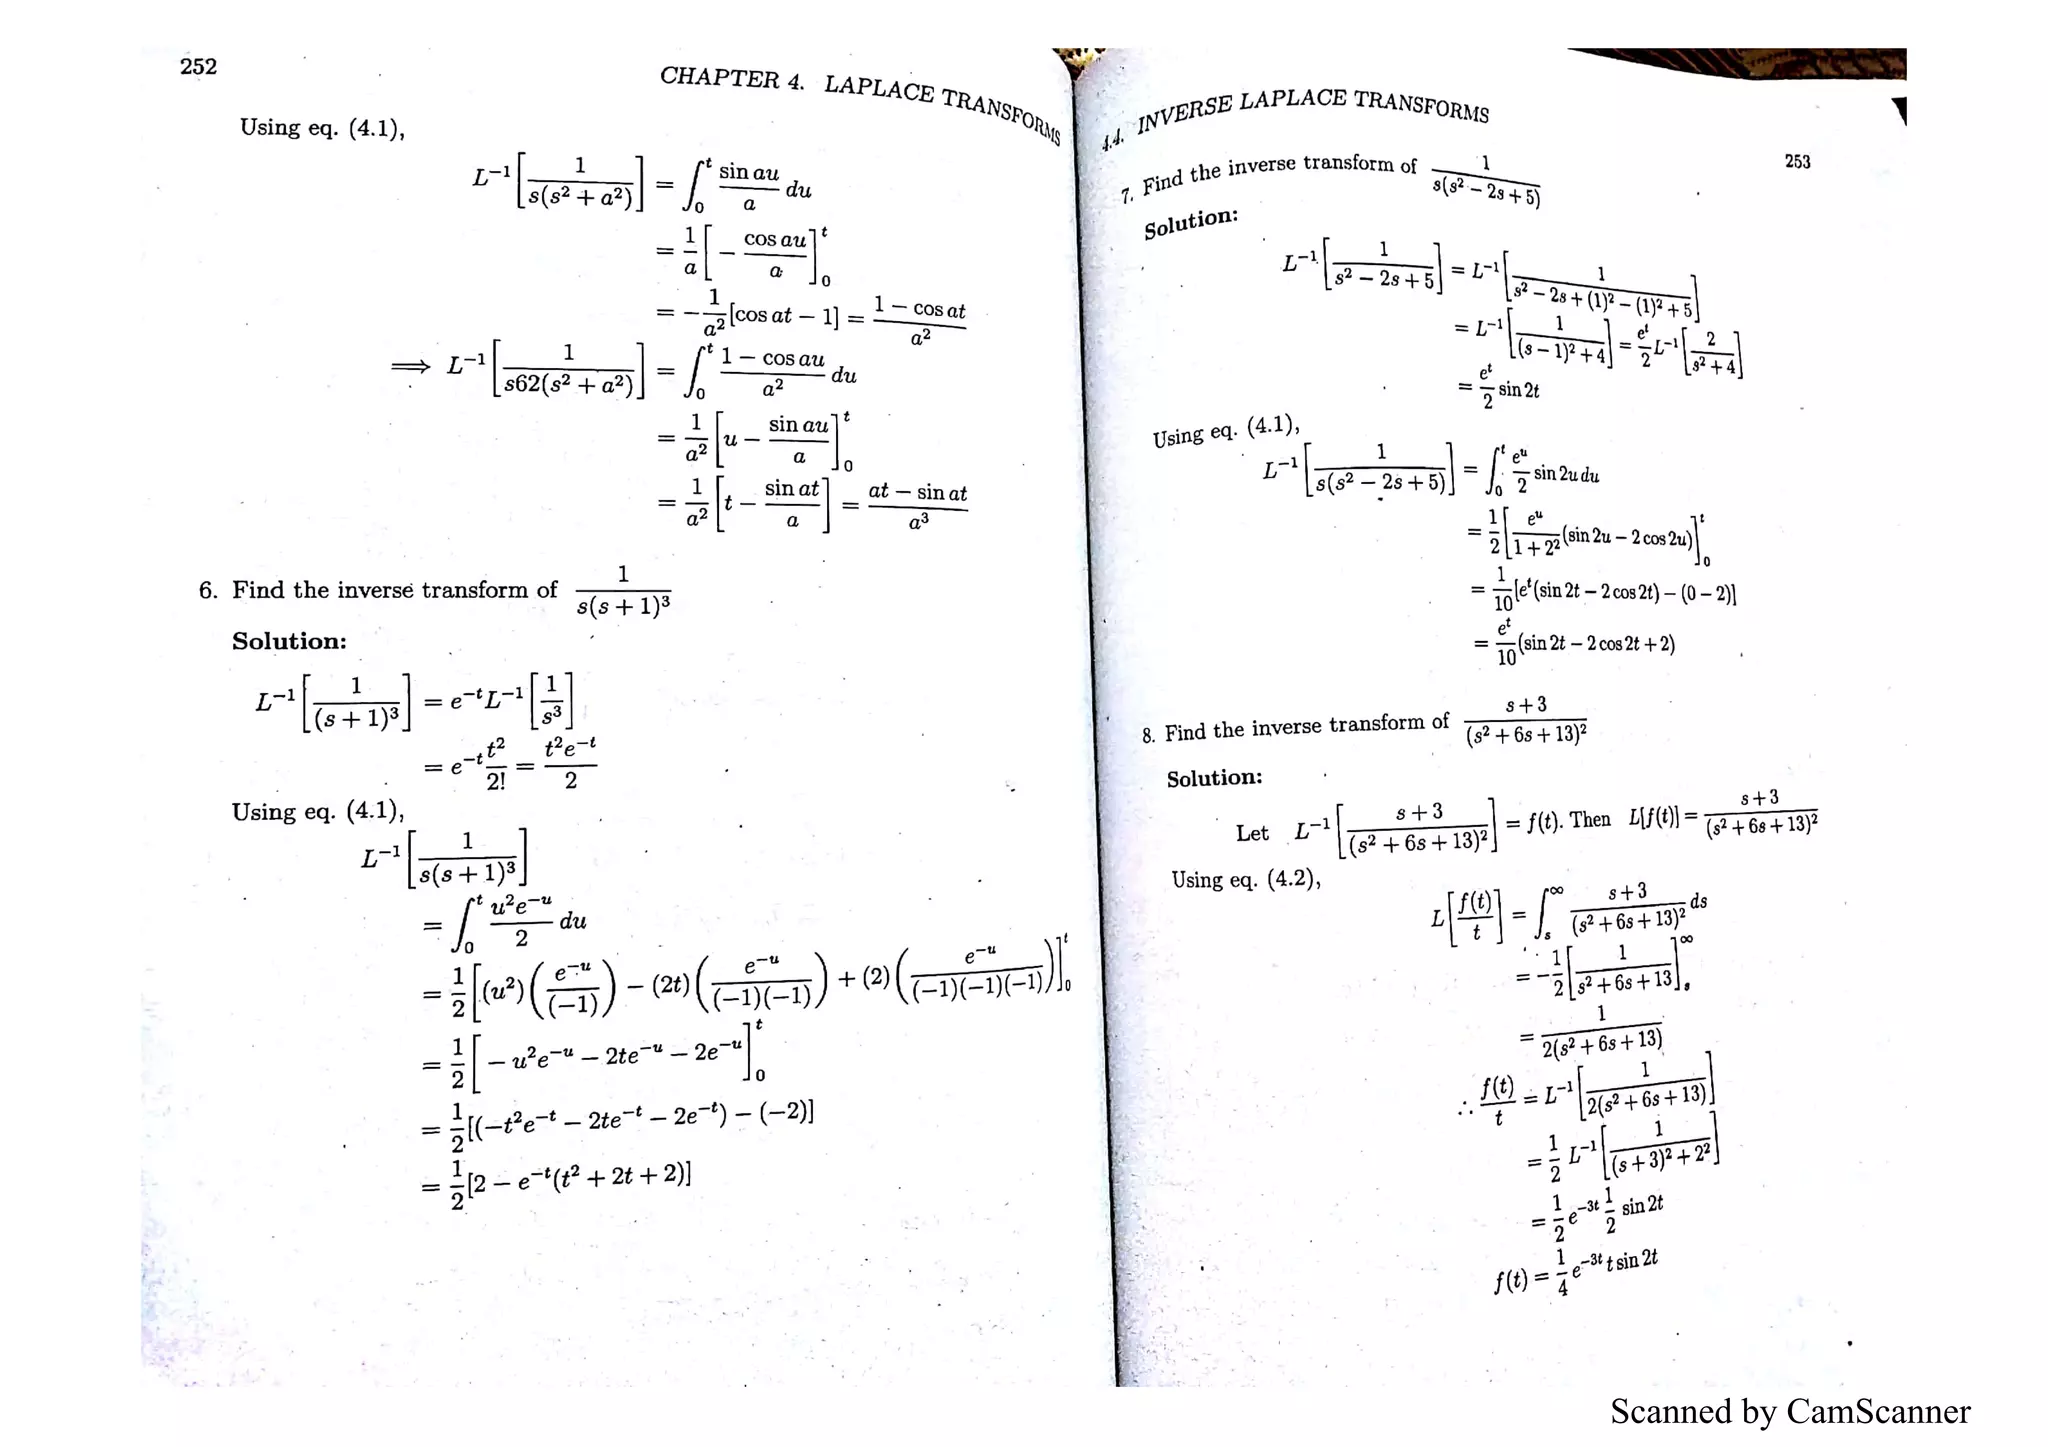 252
CHAPTER 4. LAPLACE TRANSFORMS
Using eq. (4.1),
L⁻¹[1/(s(s² + a²))] = ∫₀ᵗ (sin au)/a du
= 1/a [− (cos au)/a]₀ᵗ
= −1/a² [cos at − 1] = (1 − cos at)/a²
⟹ L⁻¹[1/(s62(s² + a²))] = ∫₀ᵗ (1 − cos au)/a² du
= 1/a² [u − (sin au)/a]₀ᵗ
= 1/a² [t − (sin at)/a] = (at − sin at)/a³
6. Find the inverse transform of 1/(s(s + 1)³)
Solution:
L⁻¹[1/(s + 1)³] = e⁻ᵗL⁻¹[1/s³]
= e⁻ᵗ t²/2! = t²e⁻ᵗ/2
Using eq. (4.1),
L⁻¹[1/(s(s + 1)³)]
= ∫₀ᵗ (u²e⁻ᵘ)/2 du
= 1/2 [(u²)(e⁻ᵘ/(−1)) − (2t)(e⁻ᵘ/((−1)(−1))) + (2)(e⁻ᵘ/((−1)(−1)(−1)))]₀ᵗ
= 1/2 [− u²e⁻ᵘ − 2te⁻ᵘ − 2e⁻ᵘ]₀ᵗ
= 1/2 [(−t²e⁻ᵗ − 2te⁻ᵗ − 2e⁻ᵗ) − (−2)]
= 1/2 [2 − e⁻ᵗ(t² + 2t + 2)]
4.4. INVERSE LAPLACE TRANSFORMS
253
7. Find the inverse transform of 1/(s(s² − 2s + 5))
Solution:
L⁻¹[1/(s² − 2s + 5)] = L⁻¹[1/(s² − 2s + (1)² − (1)² + 5)]
= L⁻¹[1/((s − 1)² + 4)] = eᵗ/2 L⁻¹[2/(s² + 4)]
= eᵗ/2 sin 2t
Using eq. (4.1),
L⁻¹[1/(s(s² − 2s + 5))] = ∫₀ᵗ eᵘ/2 sin 2u du
= 1/2 [eᵘ/(1 + 2²) (sin 2u − 2 cos 2u)]₀ᵗ
= 1/10 [eᵗ(sin 2t − 2 cos 2t) − (0 − 2)]
= eᵗ/10 (sin 2t − 2 cos 2t + 2)
8. Find the inverse transform of (s + 3)/(s² + 6s + 13)²
Solution:
Let L⁻¹[(s + 3)/(s² + 6s + 13)²] = f(t). Then L[f(t)] = (s + 3)/(s² + 6s + 13)²
Using eq. (4.2),
L[f(t)/t] = ∫ₛ^∞ (s + 3)/(s² + 6s + 13)² ds
= −1/2 [1/(s² + 6s + 13)]ₛ^∞
= 1/(2(s² + 6s + 13))
∴ f(t)/t = L⁻¹[1/(2(s² + 6s + 13))]
= 1/2 L⁻¹[1/((s + 3)² + 2²)]
= 1/2 e⁻³ᵗ 1/2 sin 2t
f(t) = 1/4 e⁻³ᵗ t sin 2t
Scanned by CamScanner